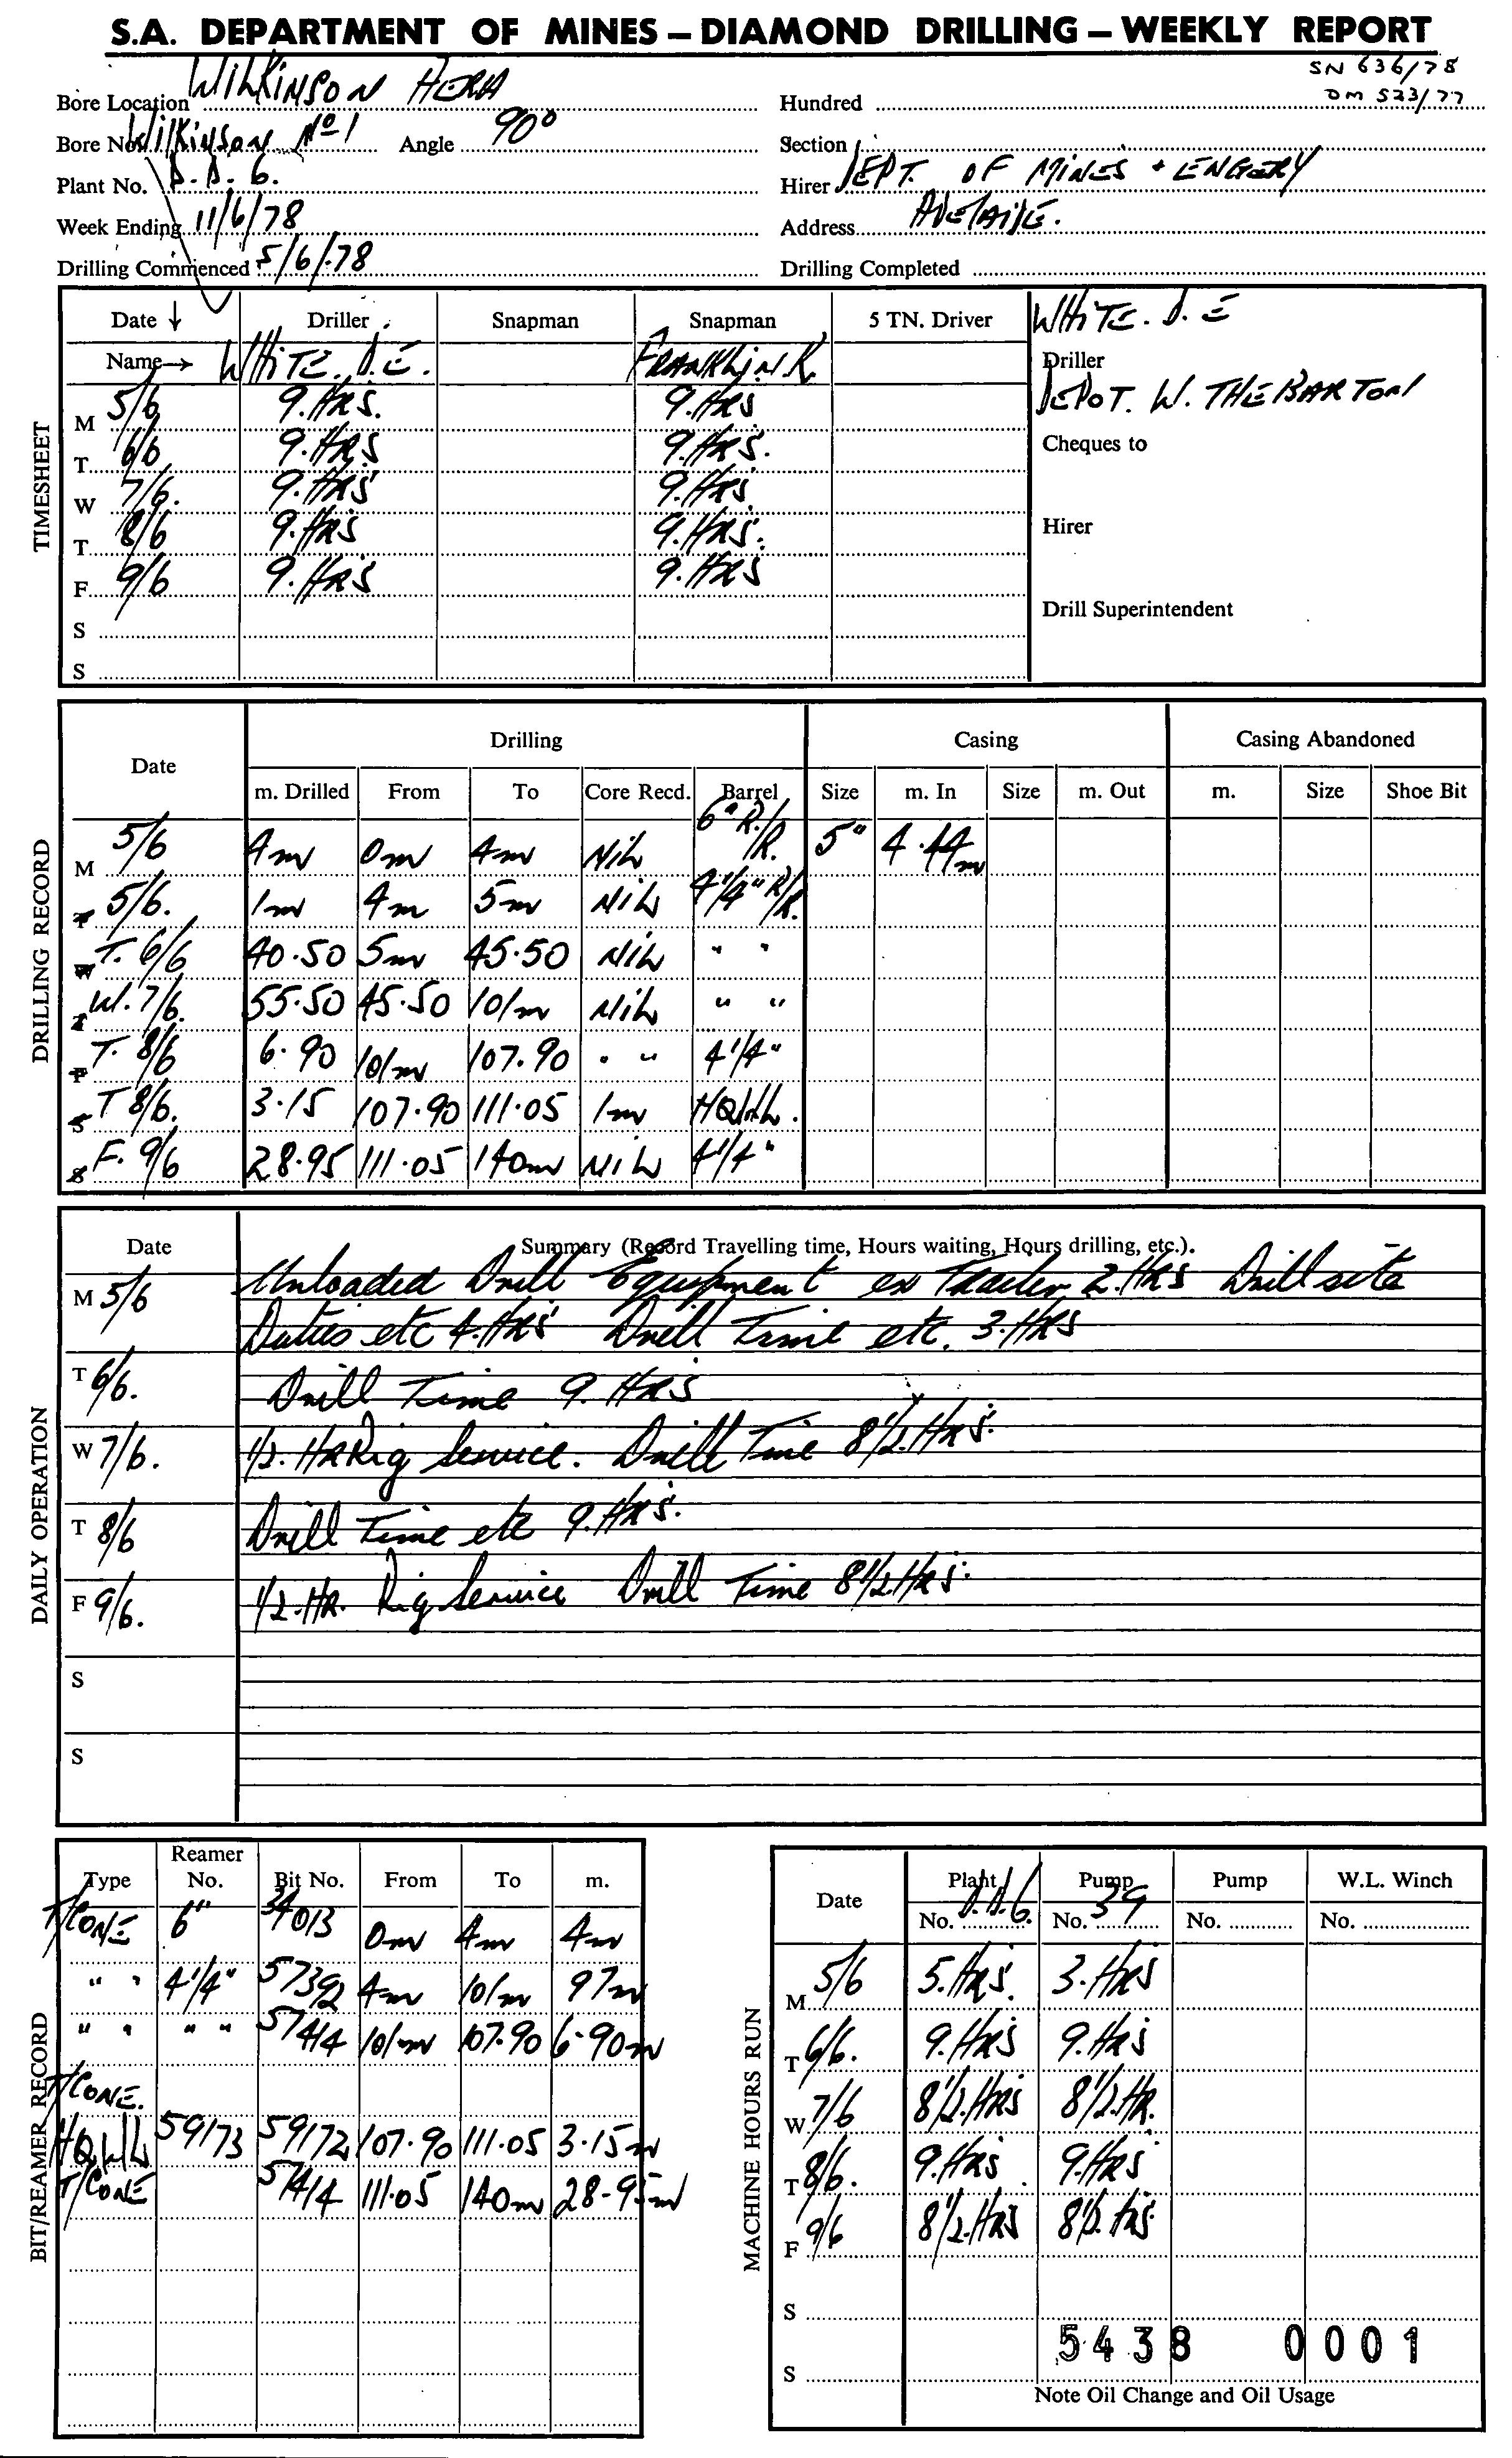 S.A. DEPARTMENT OF MINES – DIAMOND DRILLING – WEEKLY REPORT
SN 636/78
DM 523/77
Bore Location WILKINSON HERA Hundred
Bore No. Wilkinson No 1 Angle 90° Section
Plant No. D.D. 6. Hirer DEPT. OF MINES + ENGERY
Week Ending 11/6/78 Address ADELAIDE.
Drilling Commenced 5/6/78 Drilling Completed
TIMESHEET
Date ↓ Driller Snapman Snapman 5 TN. Driver WHITE. D. E
Name → WHITE. D.E. FRANKLIN.K. Driller
M 5/6 9.HRS. 9.HRS DEPOT. W. THEBARTON
T 6/6 9.HRS 9.HRS. Cheques to
W 7/6. 9.HRS 9.HRS.
T 8/6 9.HRS 9.HRS. Hirer
F 9/6 9.HRS 9.HRS
S Drill Superintendent
S
DRILLING RECORD
Date Drilling Casing Casing Abandoned
m. Drilled From To Core Recd. Barrel Size m. In Size m. Out m. Size Shoe Bit
M 5/6 4m 0m 4m NIL 6" R/R. 5" 4.44m
T 5/6. 1m 4m 5m NIL 4 1/4" R/R.
W T. 6/6 40.50 5m 45.50 NIL " "
T W. 7/6. 55.50 45.50 101m NIL " "
F T. 8/6 6.90 101m 107.90 " " 4 1/4"
S T 8/6. 3.15 107.90 111.05 1m HQWL.
S F. 9/6 28.95 111.05 140m NIL 4 1/4"
DAILY OPERATION
Date Summary (Record Travelling time, Hours waiting, Hours drilling, etc.).
M 5/6 Unloaded Drill Equipment ex Trailer 2.HRS Drillsite
Duties etc 4.HRS Drill Time etc. 3.HRS
T 6/6. Drill Time 9. HRS
W 7/6. 1/2.HR Rig Service. Drill Time 8 1/2.HRS.
T 8/6 Drill Time etc 9.HRS.
F 9/6. 1/2.HR. Rig Service Drill Time 8 1/2.HRS.
S
S
BIT/REAMER RECORD
Type Reamer No. Bit No. From To m.
T/CONE 6" 34013 0m 4m 4m
" " 4 1/4" 57392 4m 101m 97m
" " " " 57414 101m 107.90 6.90m
T/CONE.
HQWL 59173 59172 107.90 111.05 3.15m
T/CONE 57414 111.05 140m 28.95m
MACHINE HOURS RUN
Date Plant Pump Pump W.L. Winch
No. D.D.6. No. 39 No. No.
M 5/6 5.HRS. 3.HRS
T 6/6. 9.HRS 9.HRS
W 7/6 8 1/2.HRS 8 1/2.HR.
T 8/6. 9.HRS 9.HRS
F 9/6 8 1/2.HRS 8 1/2.HRS.
S
5438 0001
S
Note Oil Change and Oil Usage